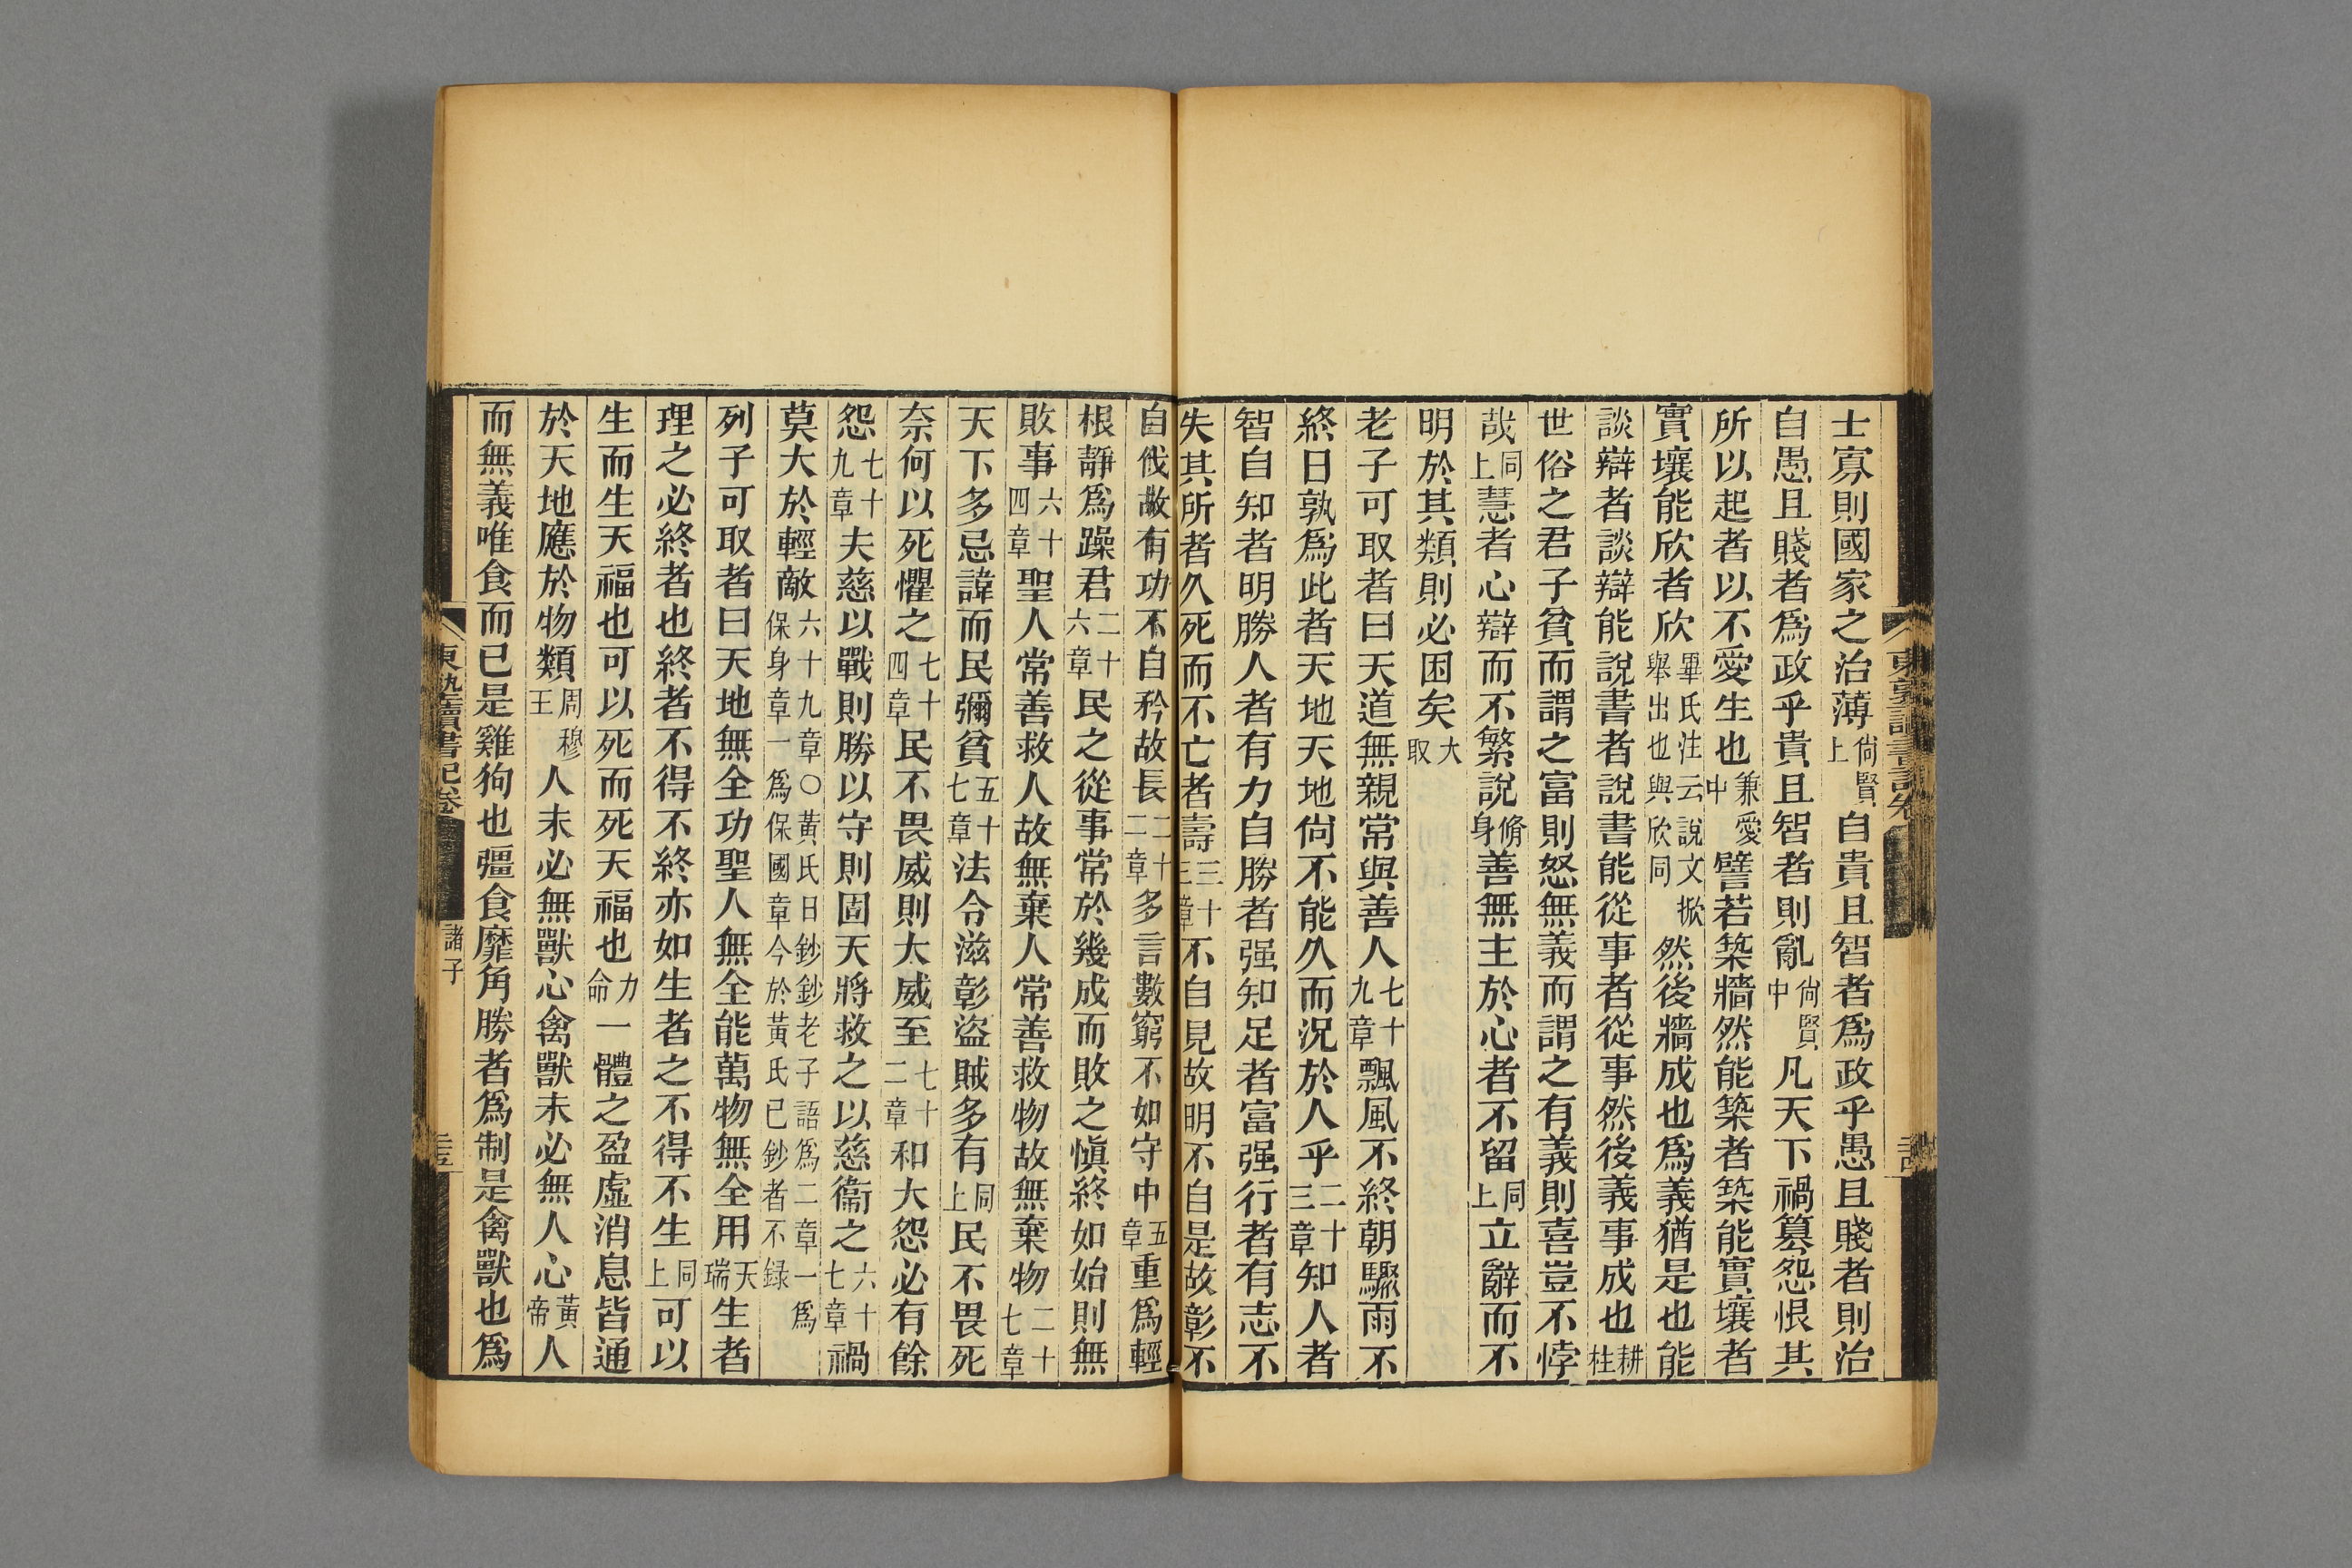 士寡則國家之治薄尙賢上自貴且智者爲政乎愚且賤者則治
自愚且賤者爲政乎貴且智者則亂尙賢中凡天下禍篡怨恨其
所以起者以不愛生也兼愛中譬若築牆然能築者築能實壤者
實壤能欣者欣畢氏注云說文掀舉出也與欣同然後牆成也爲義猶是也能
談辯者談辯能說書者說書能從事者從事然後義事成也耕柱
世俗之君子貧而謂之富則怒無義而謂之有義則喜豈不悖
哉同上慧者心辯而不繁說脩身善無主於心者不留同上立辭而不
明於其類則必困矣大取
老子可取者曰天道無親常與善人七十九章飄風不終朝驟雨不
終日孰爲此者天地天地尙不能久而況於人乎二十三章知人者
智自知者明勝人者有力自勝者强知足者富强行者有志不
失其所者久死而不亡者壽三十三章不自見故明不自是故彰不
自伐故有功不自矜故長二十二章多言數窮不如守中五章重爲輕
根靜爲躁君二十六章民之從事常於幾成而敗之愼終如始則無
敗事六十四章聖人常善救人故無棄人常善救物故無棄物二十七章
天下多忌諱而民彌貧五十七章法令滋彰盜賊多有同上民不畏死
奈何以死懼之七十四章民不畏威則大威至七十二章和大怨必有餘
怨七十九章夫慈以戰則勝以守則固天將救之以慈衞之六十七章禍
莫大於輕敵六十九章○黃氏日鈔鈔老子語爲二章一爲保身章一爲保國章今於黃氏已鈔者不録
列子可取者曰天地無全功聖人無全能萬物無全用天瑞生者
理之必終者也終者不得不終亦如生者之不得不生同上可以
生而生天福也可以死而死天福也力命一體之盈虛消息皆通
於天地應於物類周穆王人未必無獸心禽獸未必無人心黃帝人
而無義唯食而已是雞狗也彊食靡角勝者爲制是禽獸也爲
東塾讀書記卷
諸子